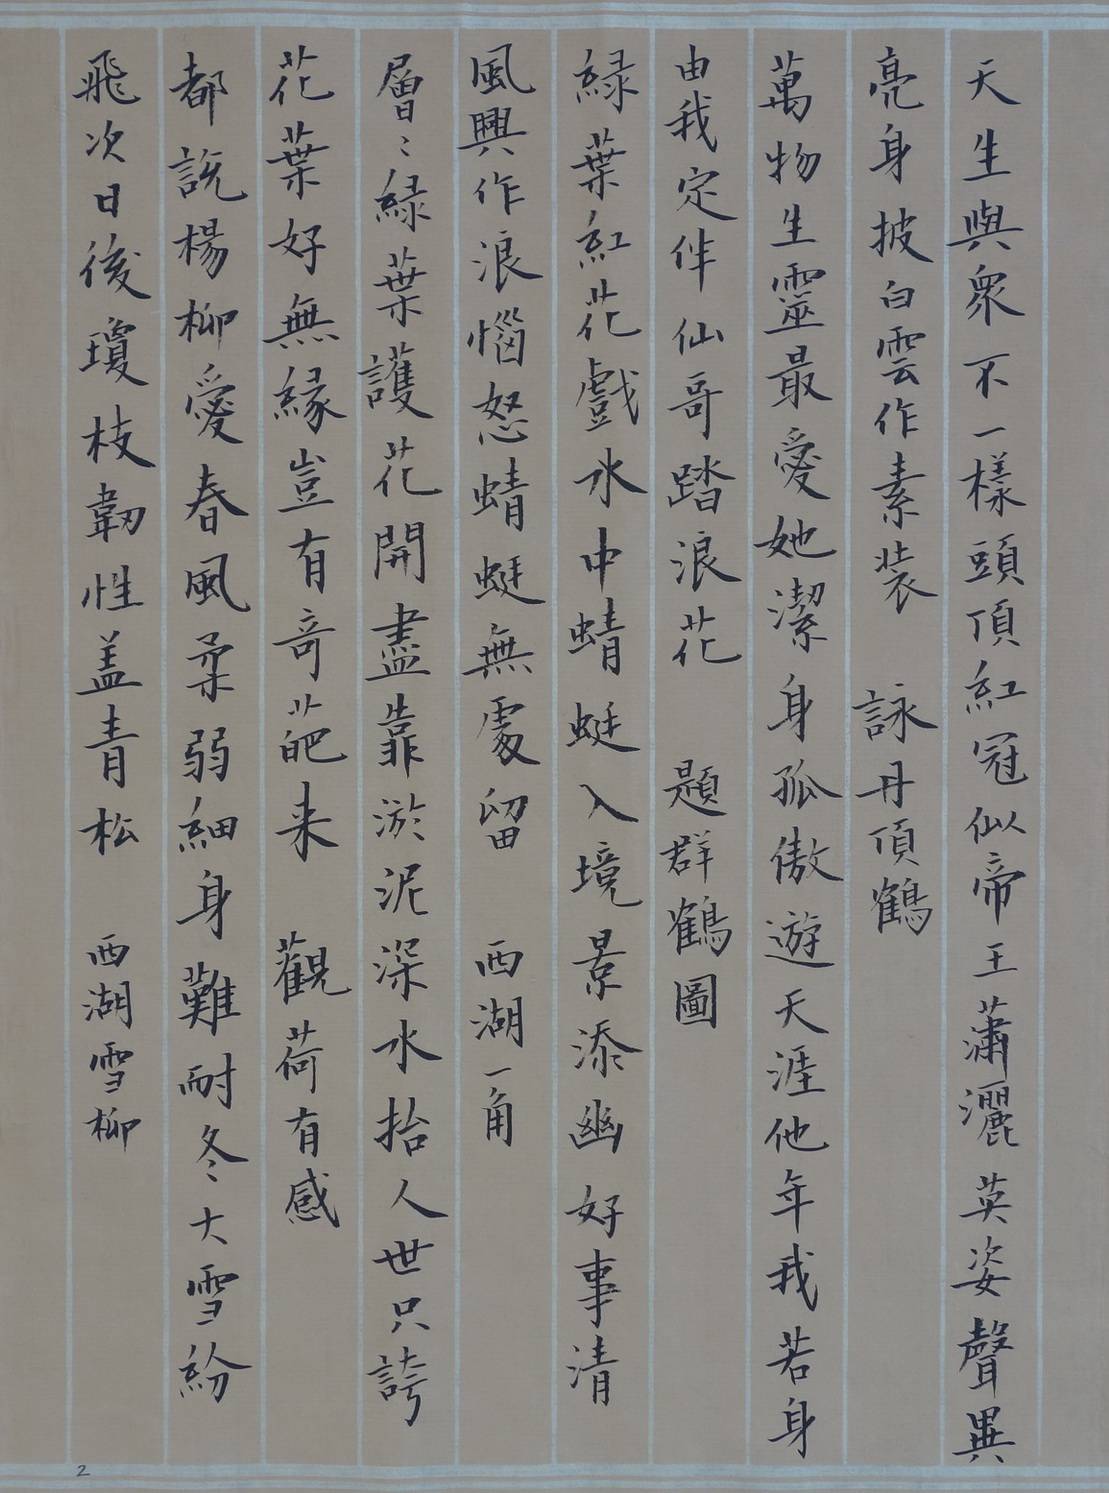 天生與眾不一樣頭頂紅冠似帝王瀟灑英姿聲異
亮身披白雲作素裝 詠丹頂鶴
萬物生靈最愛她潔身孤傲遊天涯他年我若身
由我定伴仙哥踏浪花 題群鶴圖
緑葉紅花戲水中蜻蜓入境景添幽好事清
風興作浪惱怒蜻蜓無處留 西湖一角
層〻緑葉護花開盡靠淤泥深水抬人世只誇
花葉好無緣豈有奇葩来 觀荷有感
都説楊柳愛春風柔弱細身難耐冬大雪紛
飛次日後瓊枝韌性盖青松 西湖雪柳
2